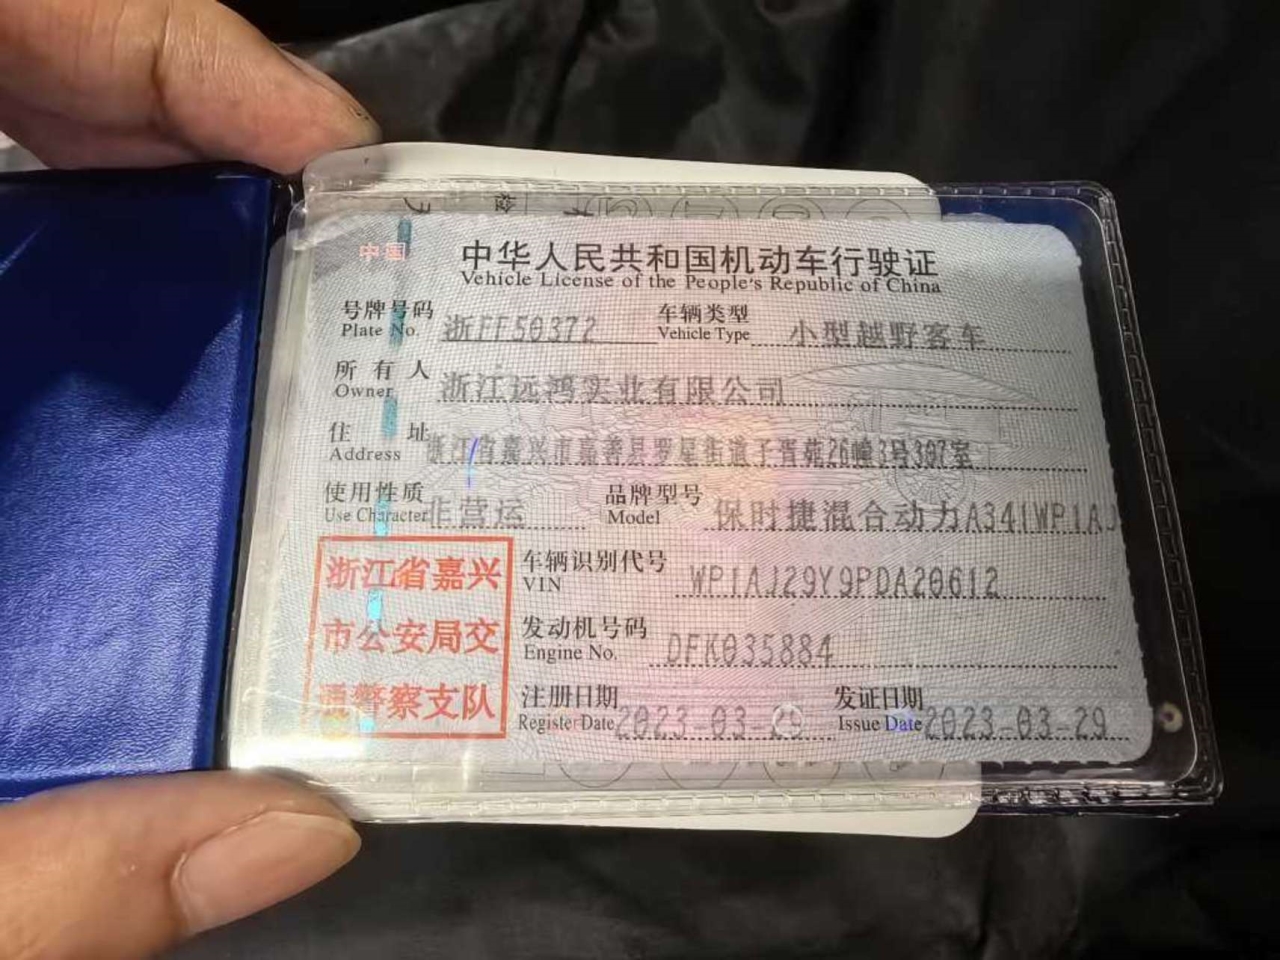 中国
中华人民共和国机动车行驶证
Vehicle License of the People's Republic of China
号牌号码 浙FF50372 车辆类型 小型越野客车
Plate No. Vehicle Type
所有人 浙江远鸿实业有限公司
Owner
住址 浙江省嘉兴市嘉善县罗星街道子胥苑26幢3号307室
Address
使用性质 非营运 品牌型号 保时捷混合动力A341WP1AJ
Use Character Model
浙江省嘉兴
市公安局交
通警察支队
车辆识别代号 WP1AJ29Y9PDA20612
VIN
发动机号码 DFK035884
Engine No.
注册日期 2023-03-29 发证日期 2023-03-29
Register Date Issue Date